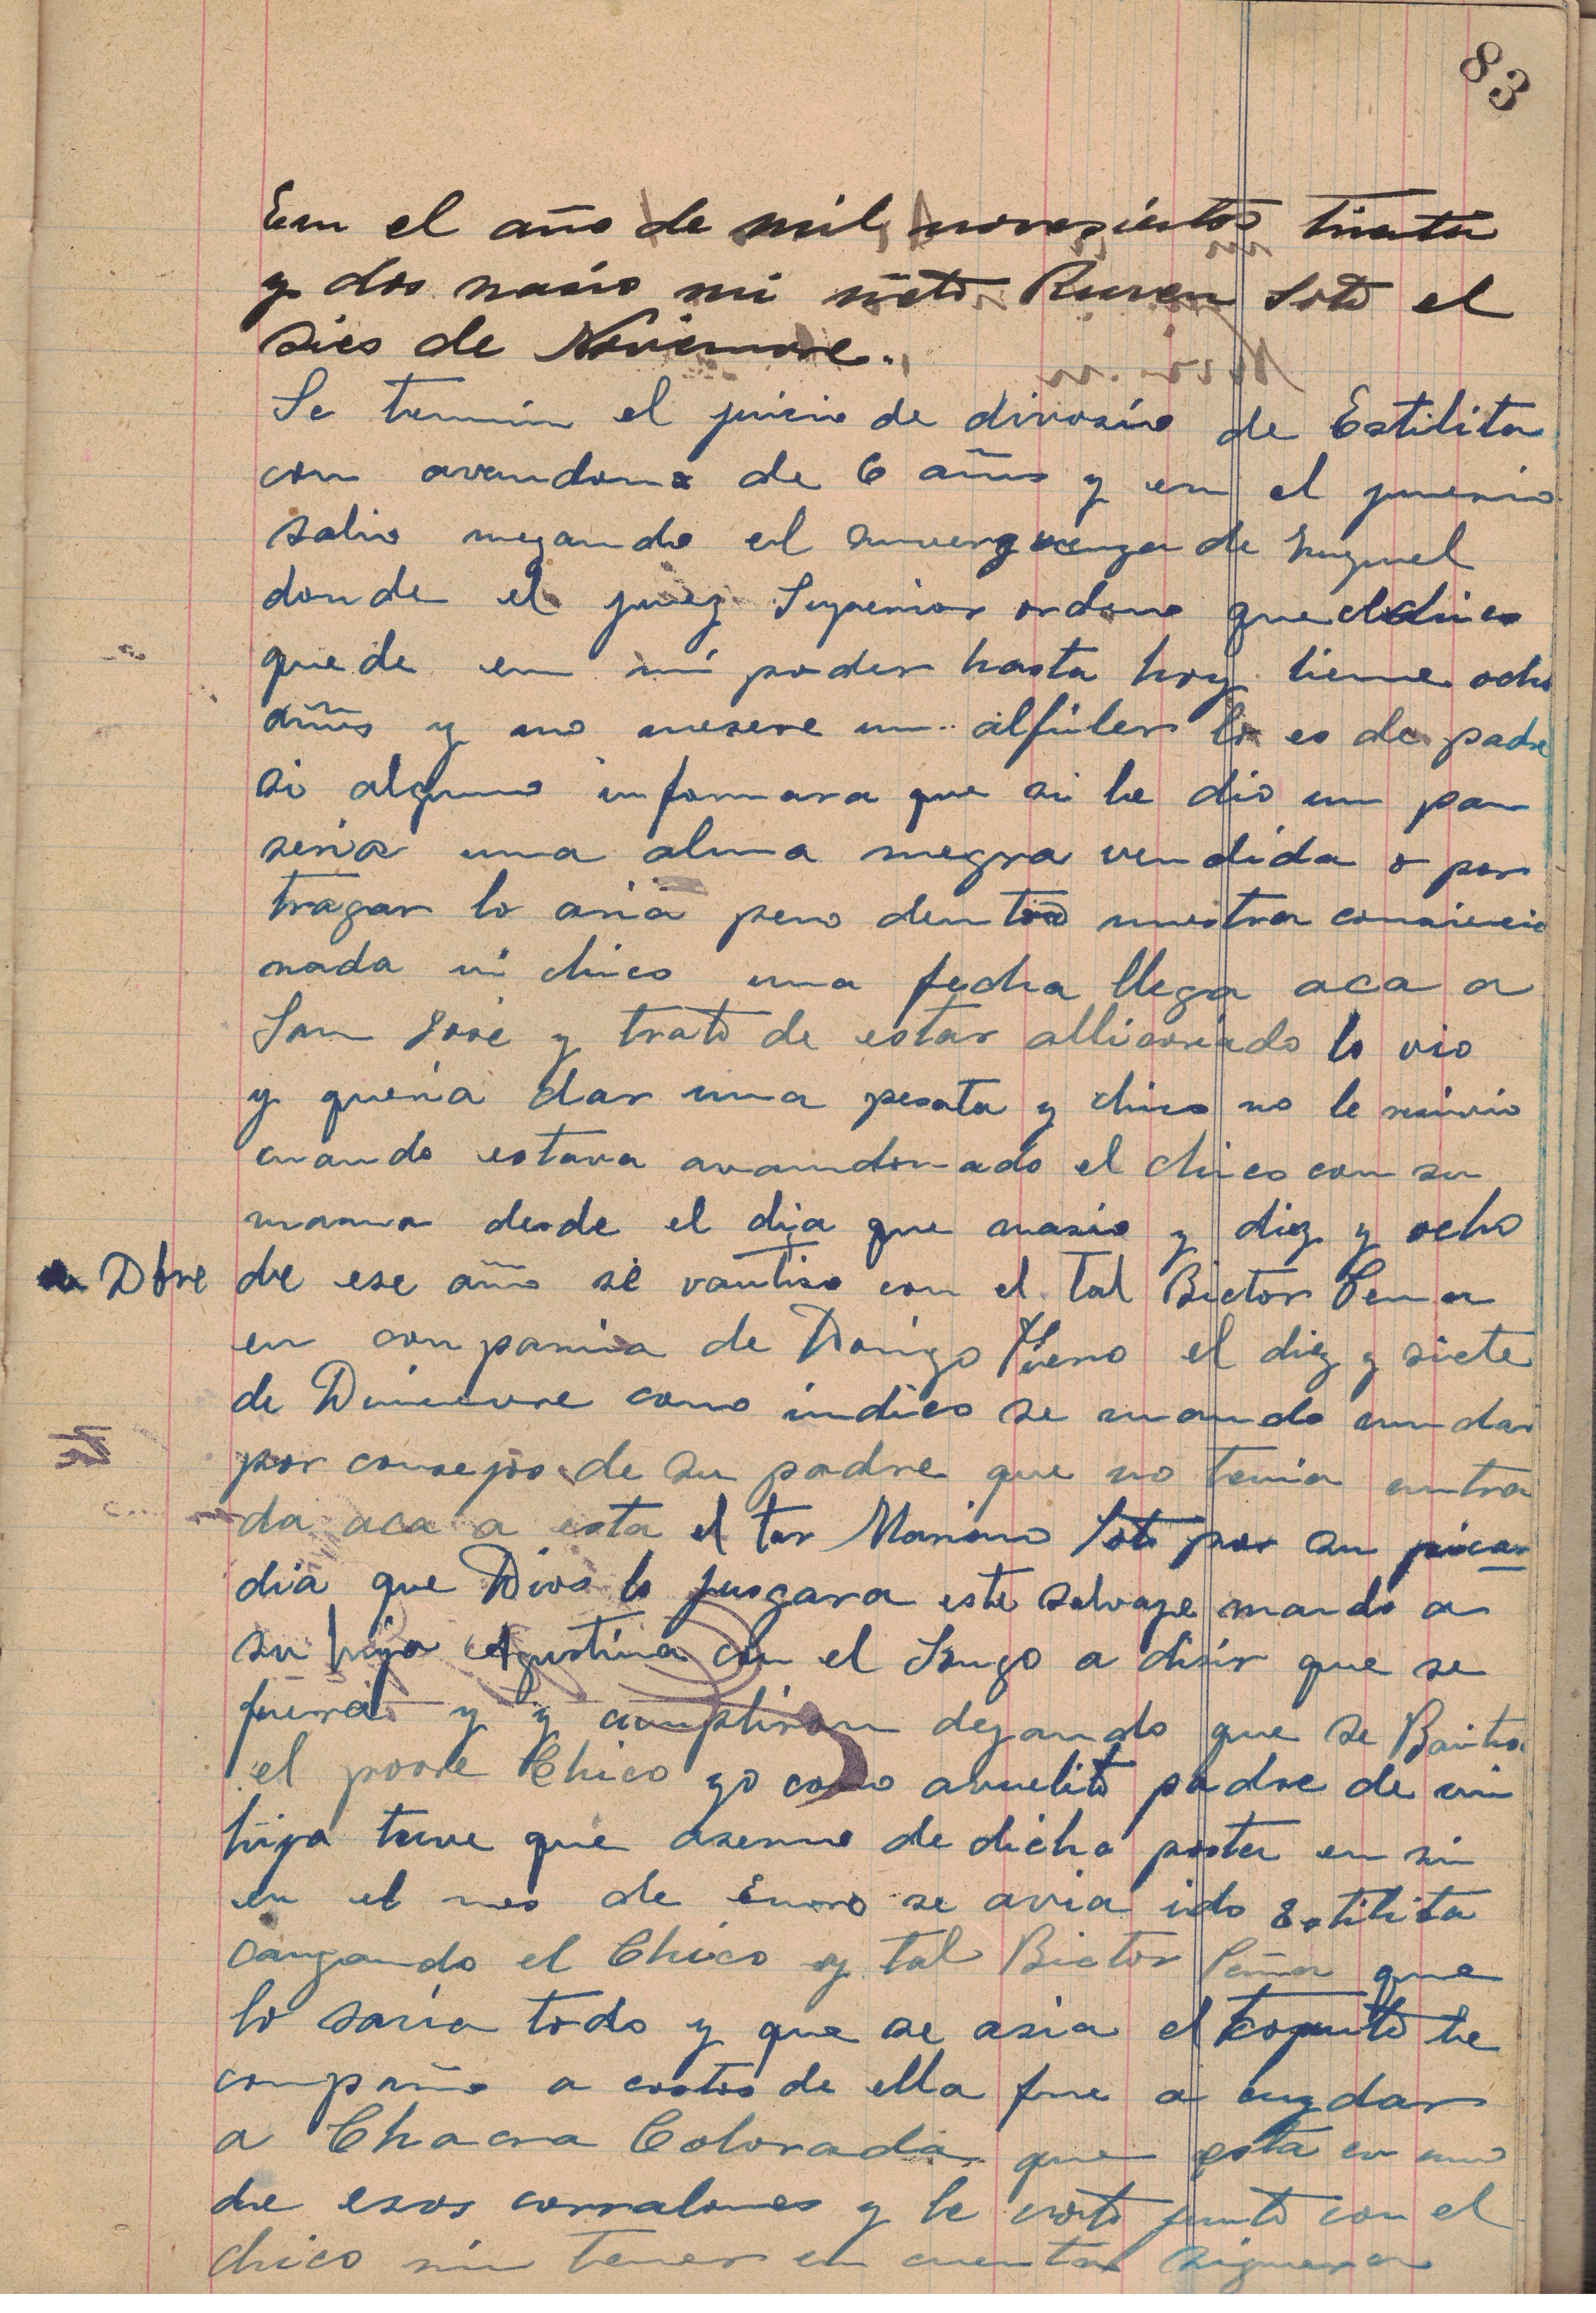 83
Em el año de mil novesientos trienta
y dos nasio mi nieto Ruven Soto el
dies de Noviemvre.
Se termin el juisio de divorsio de Estilita
con avandono de 6 años y en el juvenio
salio negando el sinverguenza de
donde el juez Superior ordeno que el chico
quede en mi poder hasta hoy tiene ocho
años y no mesere un alfiler lo es de padre
si alguno informara que si le dio un pan
seria una alma negra vendida o por
tragar lo aria pero dentro nuestra consiencia
nada mi chico una fecha llega aca a
San José y trato de estar allicoriado lo vio
y queria dar una peseta y chico no le resivio
cuando estava avandonado el chico con su
mama desde el dia que nasio y diez y ocho
Dbre de ese año se vautiso con el tal Bictor Pena
en conpania de el diez y siete
de Disiemvre como indico se mando mudar
por consejos de su padre que no tenia entra
da aca a esta el tar Mariano Soto por su picar
dia que Dios lo jusgara este salvaje mando a
su hija Agustina con el Hugo a disir que se
fuera y y cumpliron dejando que se Bautisa
el povre Chico yo como avuelito padre de mi
hija tuve que aserme de dicho posta en sin
en el mes de Enero se avia ido Estilita
cargando el Chico y tal Bictor Peña que
lo savia todo y que se asia el toquito le
conpaño a costos de ella fue a cuydar
a Chacra Colorada que esta en uno
de esos corralones y le voto junto con el
chico sin tener en cuenta siquera